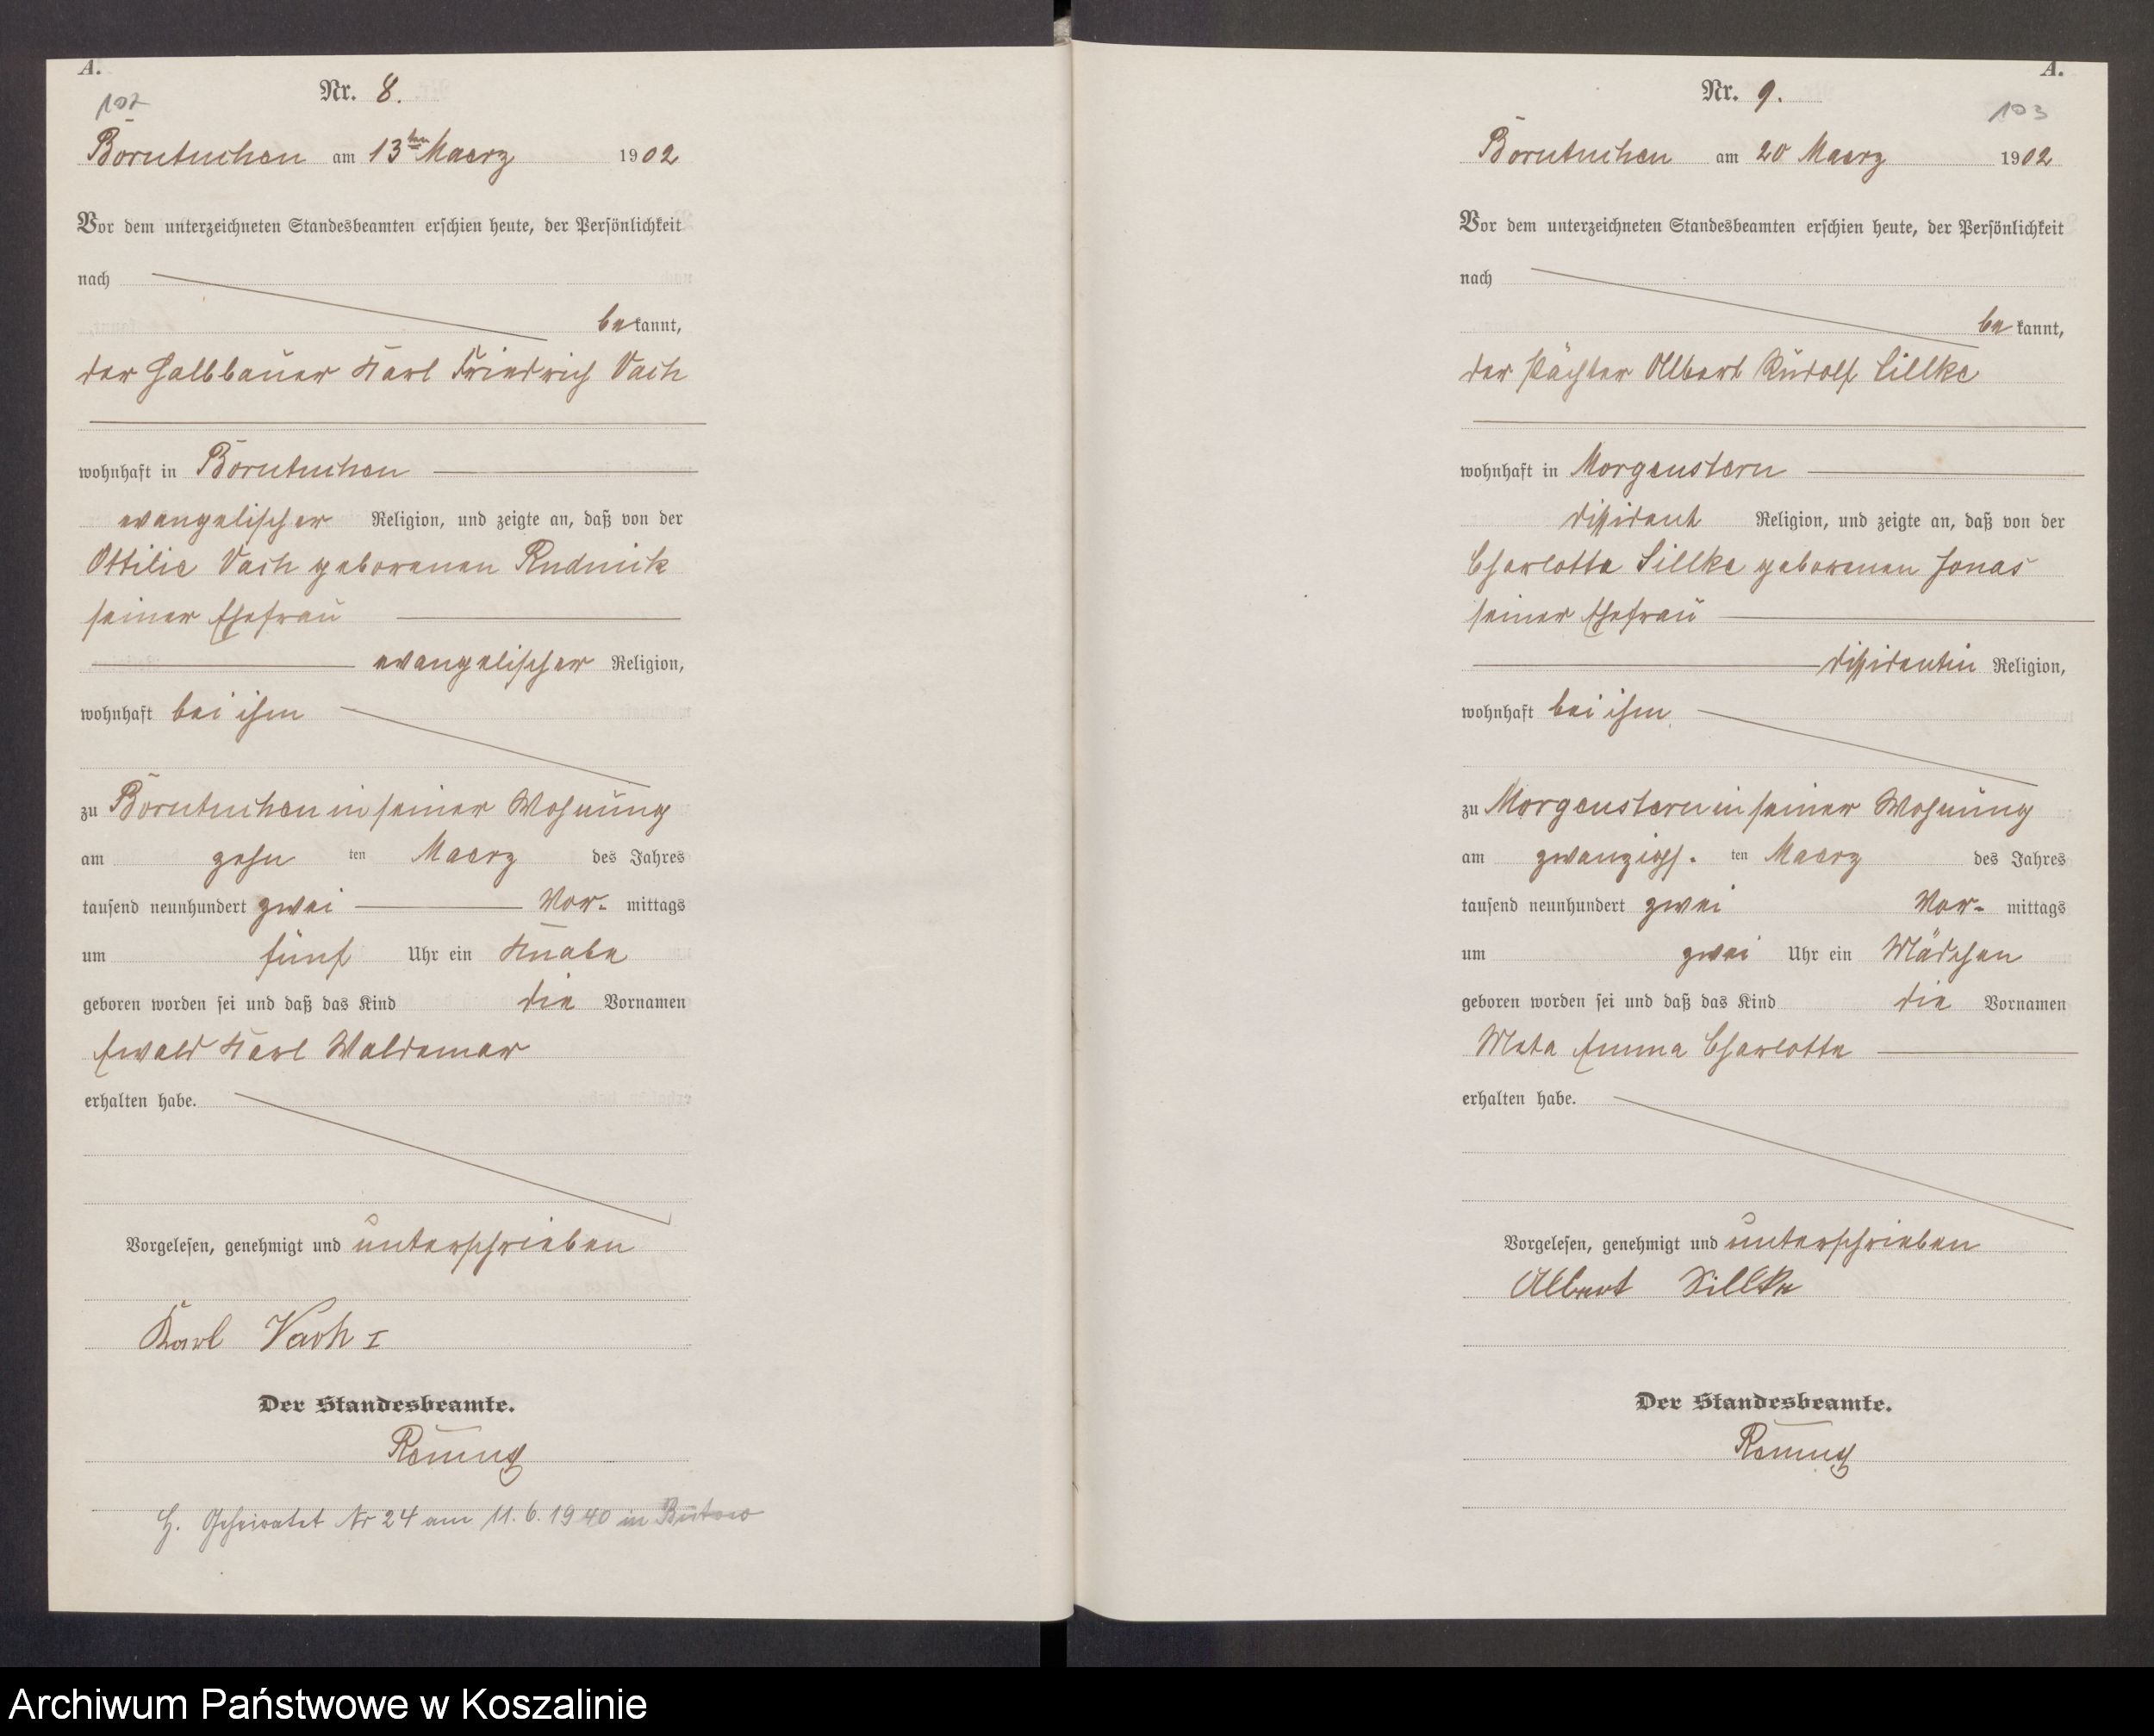 A.
102
Nr. 8.
Borntuchen am 13ten Maerz 1902
Vor dem unterzeichneten Standesbeamten erschien heute, der Persönlichkeit
nach
be kannt,
der Halbbauer Karl Friedrich Vach
wohnhaft in Borntuchen
evangelischer Religion, und zeigte an, daß von der
Ottilie Vach geborenen Rudnick
seiner Ehefrau
evangelischer Religion,
wohnhaft bei ihm
zu Borntuchen in seiner Wohnung
am zehn ten Maerz des Jahres
tausend neunhundert zwei Vor- mittags
um fünf Uhr ein Knabe
geboren worden sei und daß das Kind die Vornamen
Ewald Karl Waldemar
erhalten habe.
Vorgelesen, genehmigt und unterschrieben
Karl Vach I
Der Standesbeamte.
H. Geheiratet Nr 24 am 11.6.1940 in Bütow
A.
103
Nr. 9.
Borntuchen am 20 Maerz 1902
Vor dem unterzeichneten Standesbeamten erschien heute, der Persönlichkeit
nach
be kannt,
der Pächter Albert Rudolf Lillke
wohnhaft in Morgenstern
dissident Religion, und zeigte an, daß von der
Charlotte Lillke geborenen Jonas
seiner Ehefrau
dissidentin Religion,
wohnhaft bei ihm
zu Morgenstern in seiner Wohnung
am zwanzigs. ten Maerz des Jahres
tausend neunhundert zwei Vor- mittags
um zwei Uhr ein Mädchen
geboren worden sei und daß das Kind die Vornamen
Meta Emma Charlotte
erhalten habe.
Vorgelesen, genehmigt und unterschrieben
Albert Lillke
Der Standesbeamte.
Archiwum Państwowe w Koszalinie